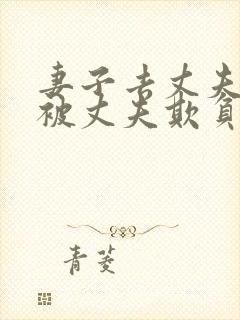 妻子去丈夫
被丈夫欺負
青菱